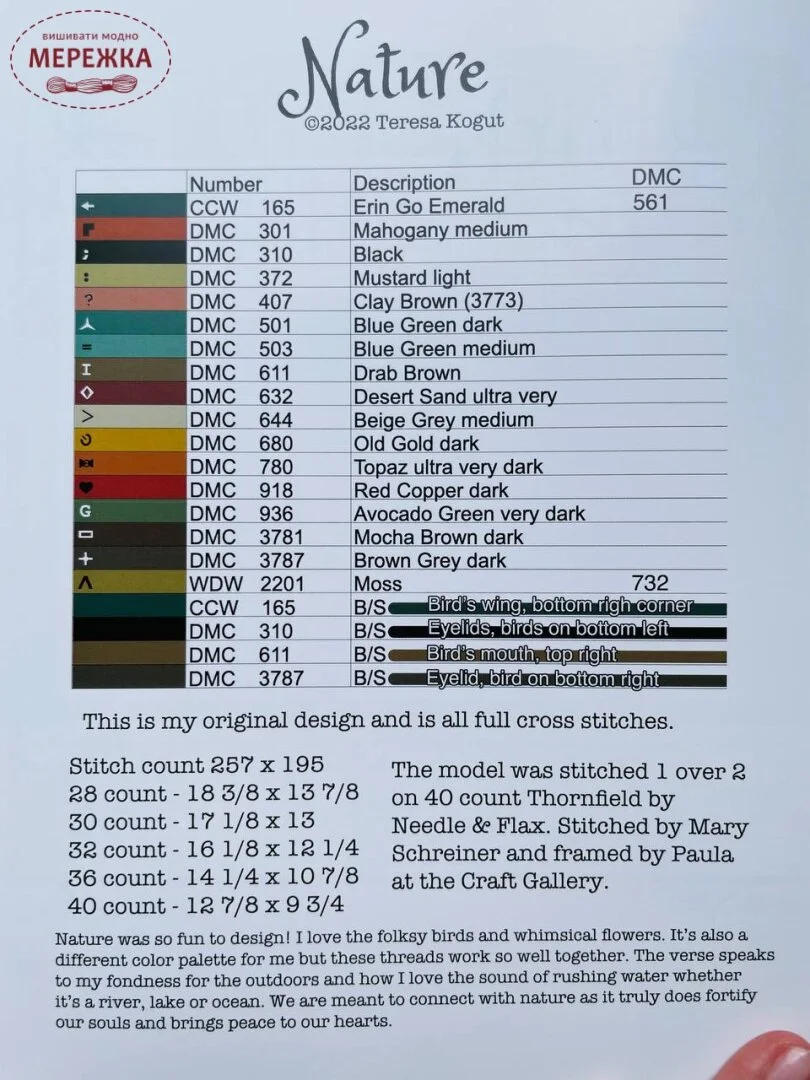 вишивати модно
МЕРЕЖКА
Nature
©2022 Teresa Kogut
Number Description DMC
CCW 165 Erin Go Emerald 561
DMC 301 Mahogany medium
; DMC 310 Black
: DMC 372 Mustard light
? DMC 407 Clay Brown (3773)
DMC 501 Blue Green dark
= DMC 503 Blue Green medium
I DMC 611 Drab Brown
◇ DMC 632 Desert Sand ultra very
> DMC 644 Beige Grey medium
DMC 680 Old Gold dark
DMC 780 Topaz ultra very dark
♥ DMC 918 Red Copper dark
G DMC 936 Avocado Green very dark
DMC 3781 Mocha Brown dark
+ DMC 3787 Brown Grey dark
Λ WDW 2201 Moss 732
CCW 165 B/S Bird's wing, bottom righ corner
DMC 310 B/S Eyelids, birds on bottom left
DMC 611 B/S Bird's mouth, top right
DMC 3787 B/S Eyelid, bird on bottom right
This is my original design and is all full cross stitches.
Stitch count 257 x 195
28 count - 18 3/8 x 13 7/8
30 count - 17 1/8 x 13
32 count - 16 1/8 x 12 1/4
36 count - 14 1/4 x 10 7/8
40 count - 12 7/8 x 9 3/4
The model was stitched 1 over 2
on 40 count Thornfield by
Needle & Flax. Stitched by Mary
Schreiner and framed by Paula
at the Craft Gallery.
Nature was so fun to design! I love the folksy birds and whimsical flowers. It's also a
different color palette for me but these threads work so well together. The verse speaks
to my fondness for the outdoors and how I love the sound of rushing water whether
it's a river, lake or ocean. We are meant to connect with nature as it truly does fortify
our souls and brings peace to our hearts.